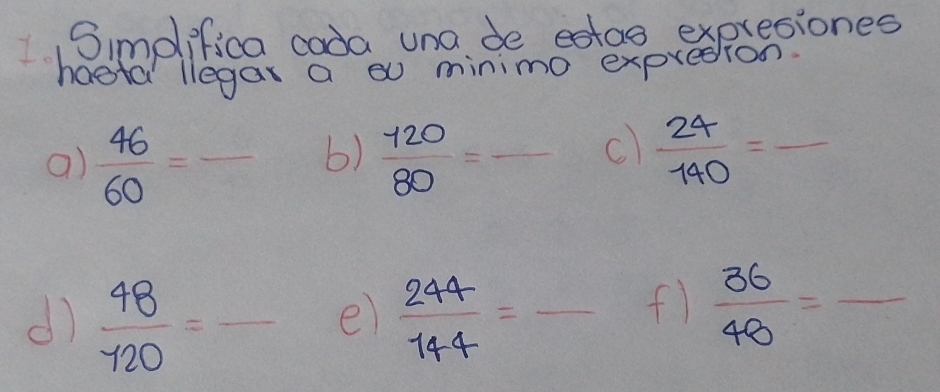 I. Simplifica cada una de estas expresiones
hasta llegar a su minimo expresion.
a) 46/60 = — b) 120/80 = — c) 24/140 = —
d) 48/120 = — e) 244/144 = — f) 36/48 = —